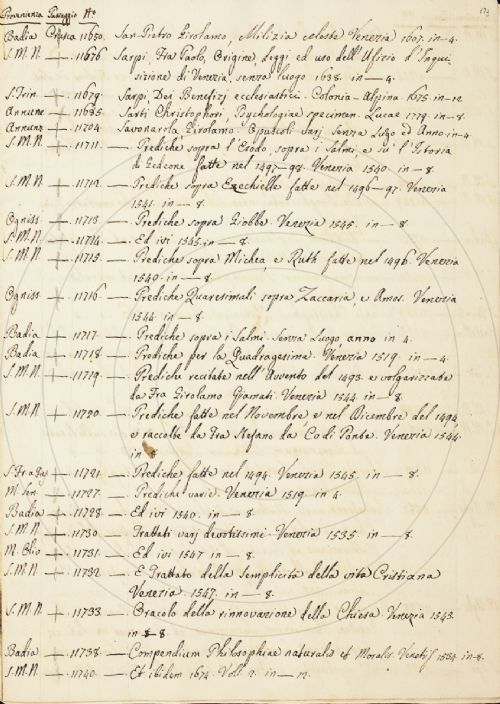 Provenienza Passaggio N.° 173
Badia Crusca 11650. San Pietro Girolamo, Milizia celeste Venezia 1607. in-4.
S.M.N. + 11676 Sarpi, Fra Paolo, Origine, Leggi ed uso dell'Ufizio d'Inqui-
sizione di Venezia. senza luogo 1638. in-4.
S. Trin. + 11679. Sarpi, Dei Benefizj ecclesiastici. Colonia-Alpina 1675 in-12
Annunz + 11685. Sarti Christophori, Psychologiae specimen. Lucae 1779. in-8.
Annunz + 11704. Savonarola Girolamo. Opuscoli varj. Senza Luogo ed Anno in-4.
S.M.N. + 11711. — Prediche sopra l'Esodo, sopra i Salmi, e su l'Istoria
di Gedeone fatte nel 1497-98. Venezia 1540. in-8.
S.M.N. + 11712. — Prediche sopra Ezechielle fatte nel 1496-97. Venezia
1541. in-8.
Ogniss. + 11713. — Prediche sopra Giobbe. Venezia 1545. in-8.
S.M.N. + 11714. — Ed ivi 1545. in-8.
S.M.N. + 11715. — Prediche sopra Michea, e Ruth fatte nel 1496. Venezia
1540. in-8.
Ogniss. + 11716. — Prediche Quaresimali sopra Zaccaria, e Amos. Venezia
1544. in-8.
Badia + 11717. — Prediche sopra i Salmi. Senza Luogo, anno in 4.
Badia + 11718. — Prediche per la Quadragesima. Venezia 1519. in-4.
S.M.N. + 11719. — Prediche recitate nell'Avvento del 1493. e volgarizzate
da Fra Girolamo Giannoti. Venezia 1544 in-8.
S.M.N. + 11720. — Prediche fatte nel Novembre, e nel Dicembre del 1494,
e raccolte da Fra Stefano da Co di Ponte. Venezia 1544.
in 8
+ 11721. — Prediche fatte nel 1494. Venezia 1545. in-8.
+ 11727. — Prediche varie. Venezia 1519. in 4.
Badia + 11728. — Ed ivi 1540. in-8.
S.M.N. + 11730 — Trattati varj devotissimi. Venezia 1535. in-8.
+ 11731. — Ed ivi 1547. in-8.
S.M.N. + 11732. — E Trattato della Semplicità della vita Cristiana
Venezia. 1547. in-8.
S.M.N. + 11733. — Oracolo della rinnovazione della Chiesa. Venezia 1543.
in 8
Badia + 11738. — Compendium Philosophiae naturalis et Moralis. Venetijs 1534. in-8.
S.M.N. + 11740. — Et ibidem 1674. Voll. 2. in-12.